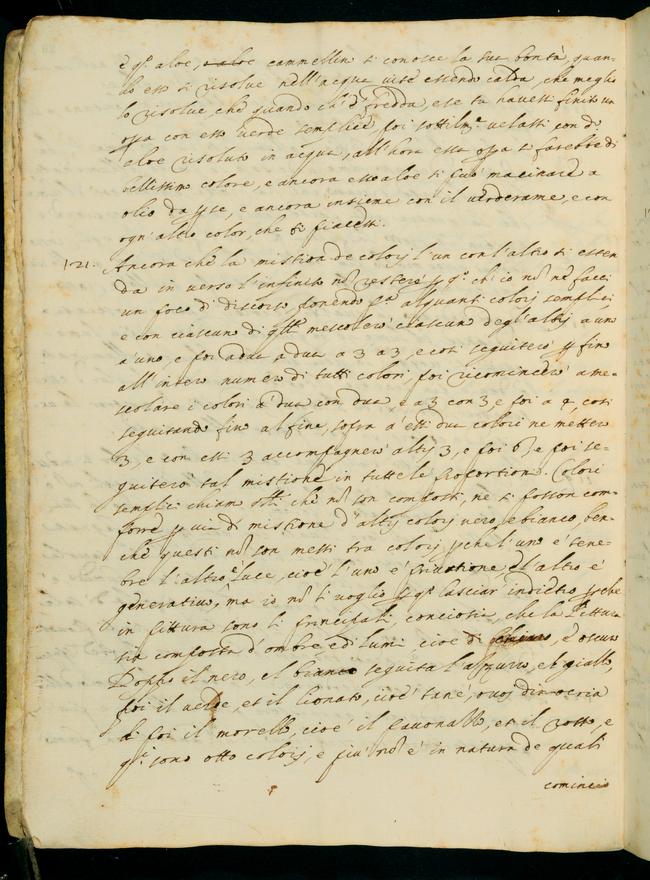 è q.º aloe, e aloe cammellin si conosce la sua bontà, quan-
do esso si risolve nell'acqua vite essendo calda, che meglio
lo risolve, che quando ell'è fredda, e se tu havessi finito un
opra con esso verde semplice, poi sottilm.te velassi con d.º
aloe risoluto in acqua, all'hora essa opra si farebbe di
bellissimo colore, e ancora esso aloe si può macinare a
olio da per se, e ancora insieme con il verderame, e con
ogn'altro color, che ti piacessi.
121. Ancora che la mistion de colorj l'un con l'altro si esten
da in verso l'infinito nō resterò p q.º ch'io nō ne facci
un poco di discorso, ponendo p.ª alquanti colorj semplici
e con ciascun di q.lli mescolerò ciascun degl'altrj a uno
a uno, e poi a dua a dua a 3 a 3, e così seguiterò p fino
all'intero numero di tutti colori, poi ricomincerò a me-
scolare i colori a dua con dua e a 3 con 3, e poi a 4, così
seguitando fino al fine, sopra a essi dua colori ne metterò
3, e con essi 3 accompagnerò altrj 3, e poi 6, e poi se-
guiterò tal mistione in tutte le proportion. Colori
semplici chiamo q.lli che nō son composti, ne si posson com-
porre p via di mistione d'altrj colorj nero, e bianco, ben-
chè questi nō son messi tra colorj, pche l'uno è tene-
bre l'altro è luce, cioè l'uno è privatione, el altro è
generativo, ma io nō li voglio p q.º lasciar indietro pche
in pittura sono li principali, conciosia che la Pittura
sia composta d'ombre, e di lumi, cioè di chiaro, e oscuro
Doppo il nero, el bianco seguita l'azzurro, e b giallo,
poi il verde, et il lionato, cioè tanè, o vuoj dir ocria
di poi il morello, cioè il pavonazzo, et il rosso, e
q.i sono otto colorj, e più nō è in natura de quali
comincio